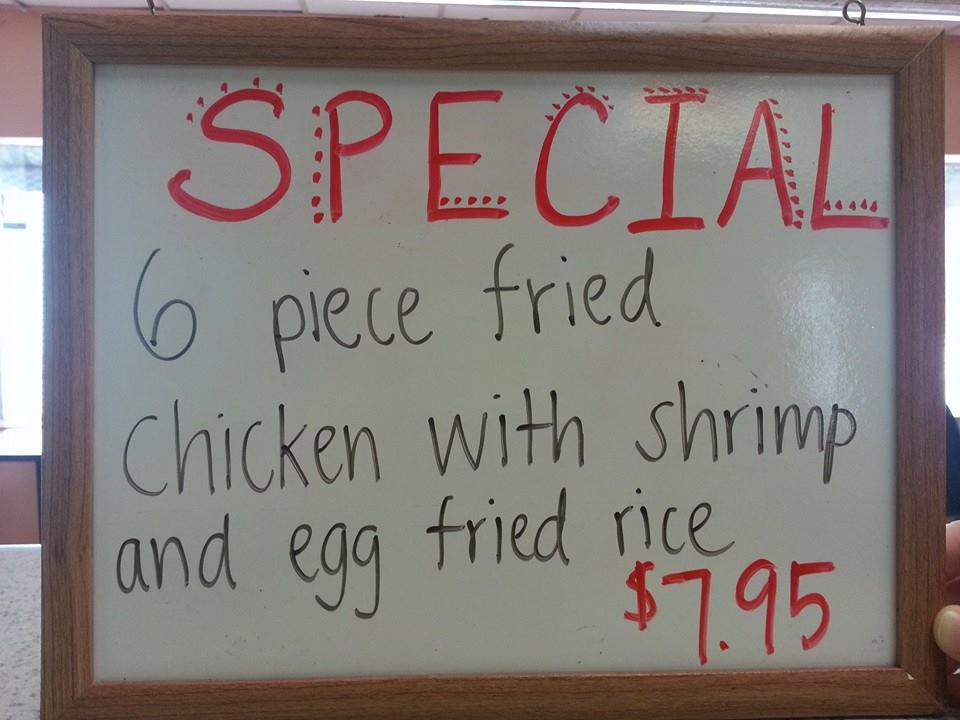 SPECIAL
6 piece fried
Chicken with shrimp
and egg fried rice
$7.95